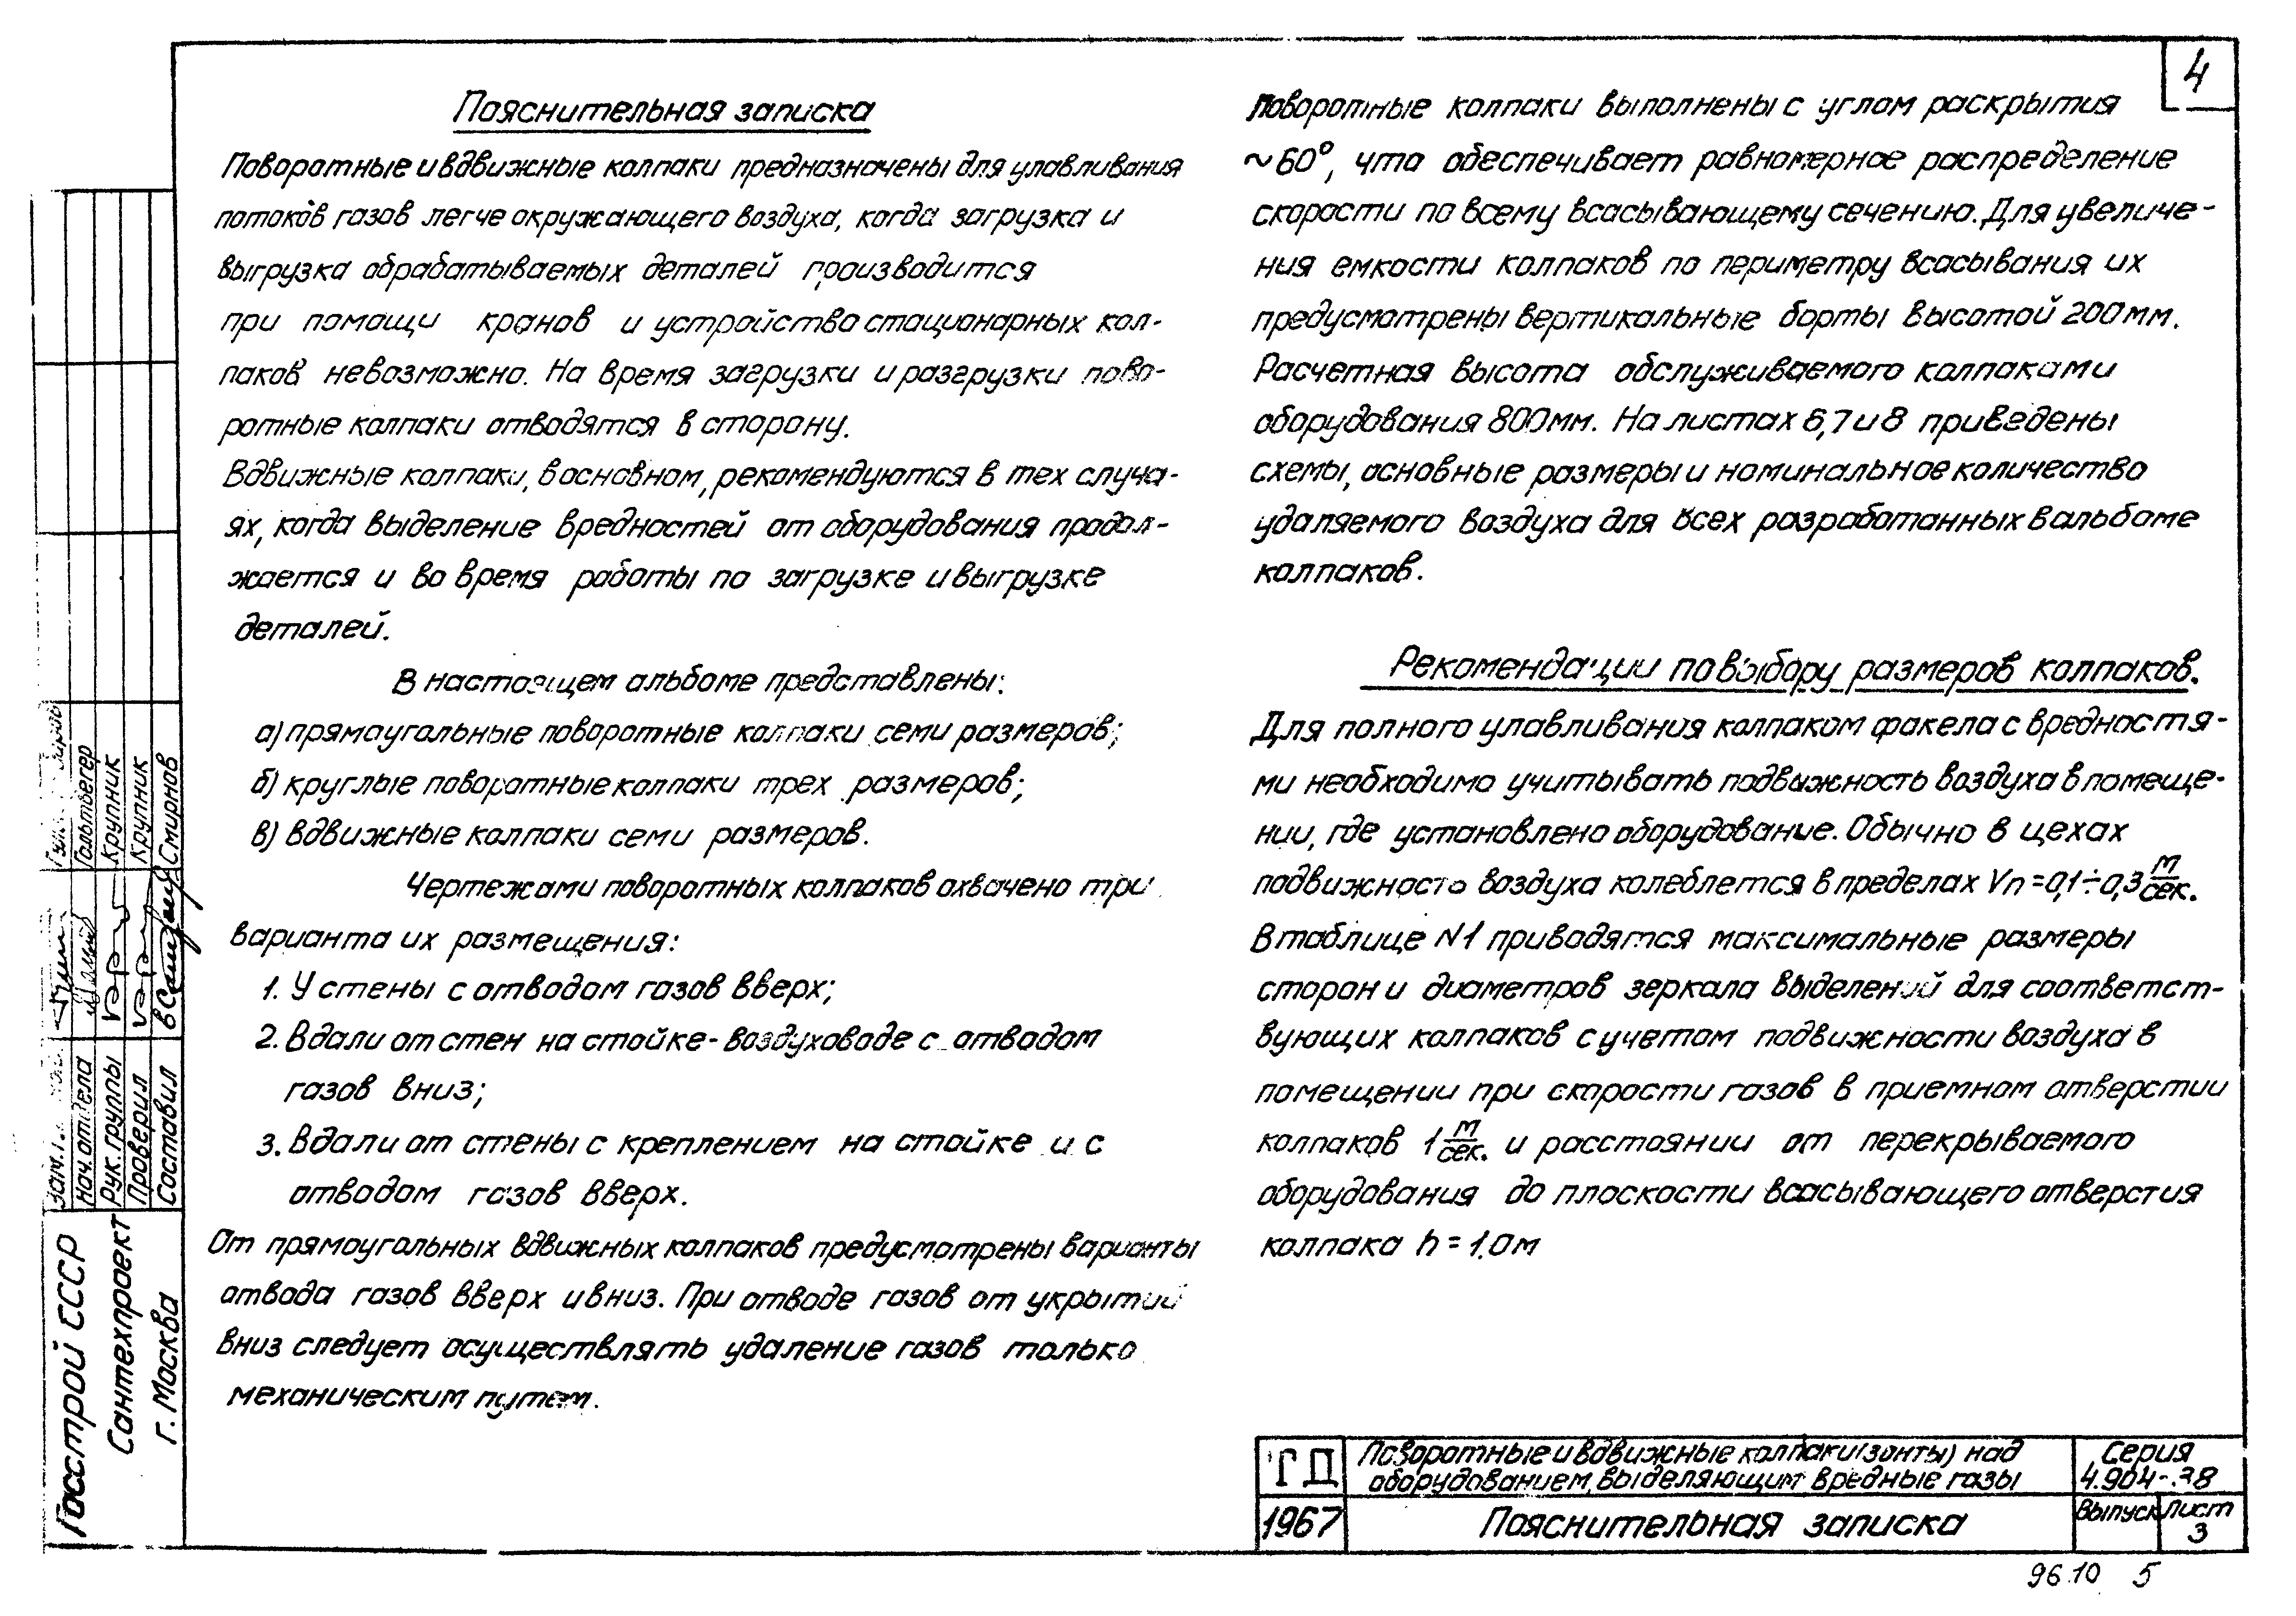 4
Пояснительная записка
Поворотные и вдвижные колпаки предназначены для улавливания
потоков газов легче окружающего воздуха, когда загрузка и
выгрузка обрабатываемых деталей производится
при помощи кранов и устройство стационарных кол-
паков невозможно. На время загрузки и разгрузки пово-
ротные колпаки отводятся в сторону.
Вдвижные колпаки, в основном, рекомендуются в тех случа-
ях, когда выделение вредностей от оборудования продол-
жается и во время работы по загрузке и выгрузке
деталей.
В настоящем альбоме представлены:
а) прямоугольные поворотные колпаки семи размеров;
б) круглые поворотные колпаки трех размеров;
в) вдвижные колпаки семи размеров.
Чертежами поворотных колпаков охвачено три
варианта их размещения:
1. У стены с отводом газов вверх;
2. Вдали от стен на стойке-воздуховоде с отводом
газов вниз;
3. Вдали от стены с креплением на стойке и с
отводом газов вверх.
От прямоугольных вдвижных колпаков предусмотрены варианты
отвода газов вверх и вниз. При отводе газов от укрытий
вниз следует осуществлять удаление газов только
механическим путем.
Поворотные колпаки выполнены с углом раскрытия
~60°, что обеспечивает равномерное распределение
скорости по всему всасывающему сечению. Для увеличе-
ния емкости колпаков по периметру всасывания их
предусмотрены вертикальные борты высотой 200мм.
Расчетная высота обслуживаемого колпаками
оборудования 800мм. На листах 6,7 и 8 приведены
схемы, основные размеры и номинальное количество
удаляемого воздуха для всех разработанных в альбоме
колпаков.
Рекомендации по выбору размеров колпаков.
Для полного улавливания колпаком факела с вредностя-
ми необходимо учитывать подвижность воздуха в помеще-
нии, где установлено оборудование. Обычно в цехах
подвижность воздуха колеблется в пределах Vп=0,1÷0,3 м/сек.
В таблице N1 приводятся максимальные размеры
сторон и диаметров зеркала выделений для соответст-
вующих колпаков с учетом подвижности воздуха в
помещении при скорости газов в приемном отверстии
колпаков 1 м/сек. и расстоянии от перекрываемого
оборудования до плоскости всасывающего отверстия
колпака h=1.0м
Госстрой СССР
Сантехпроект
г. Москва
Нач. отдела Гольтвегер
Рук. группы Крупник
Проверил Крупник
Составил Смирнов
ТД
1967
Поворотные и вдвижные колпаки (зонты) над
оборудованием, выделяющим вредные газы
Пояснительная записка
Серия
4.904-38
Выпуск
Лист
3
96.10 5